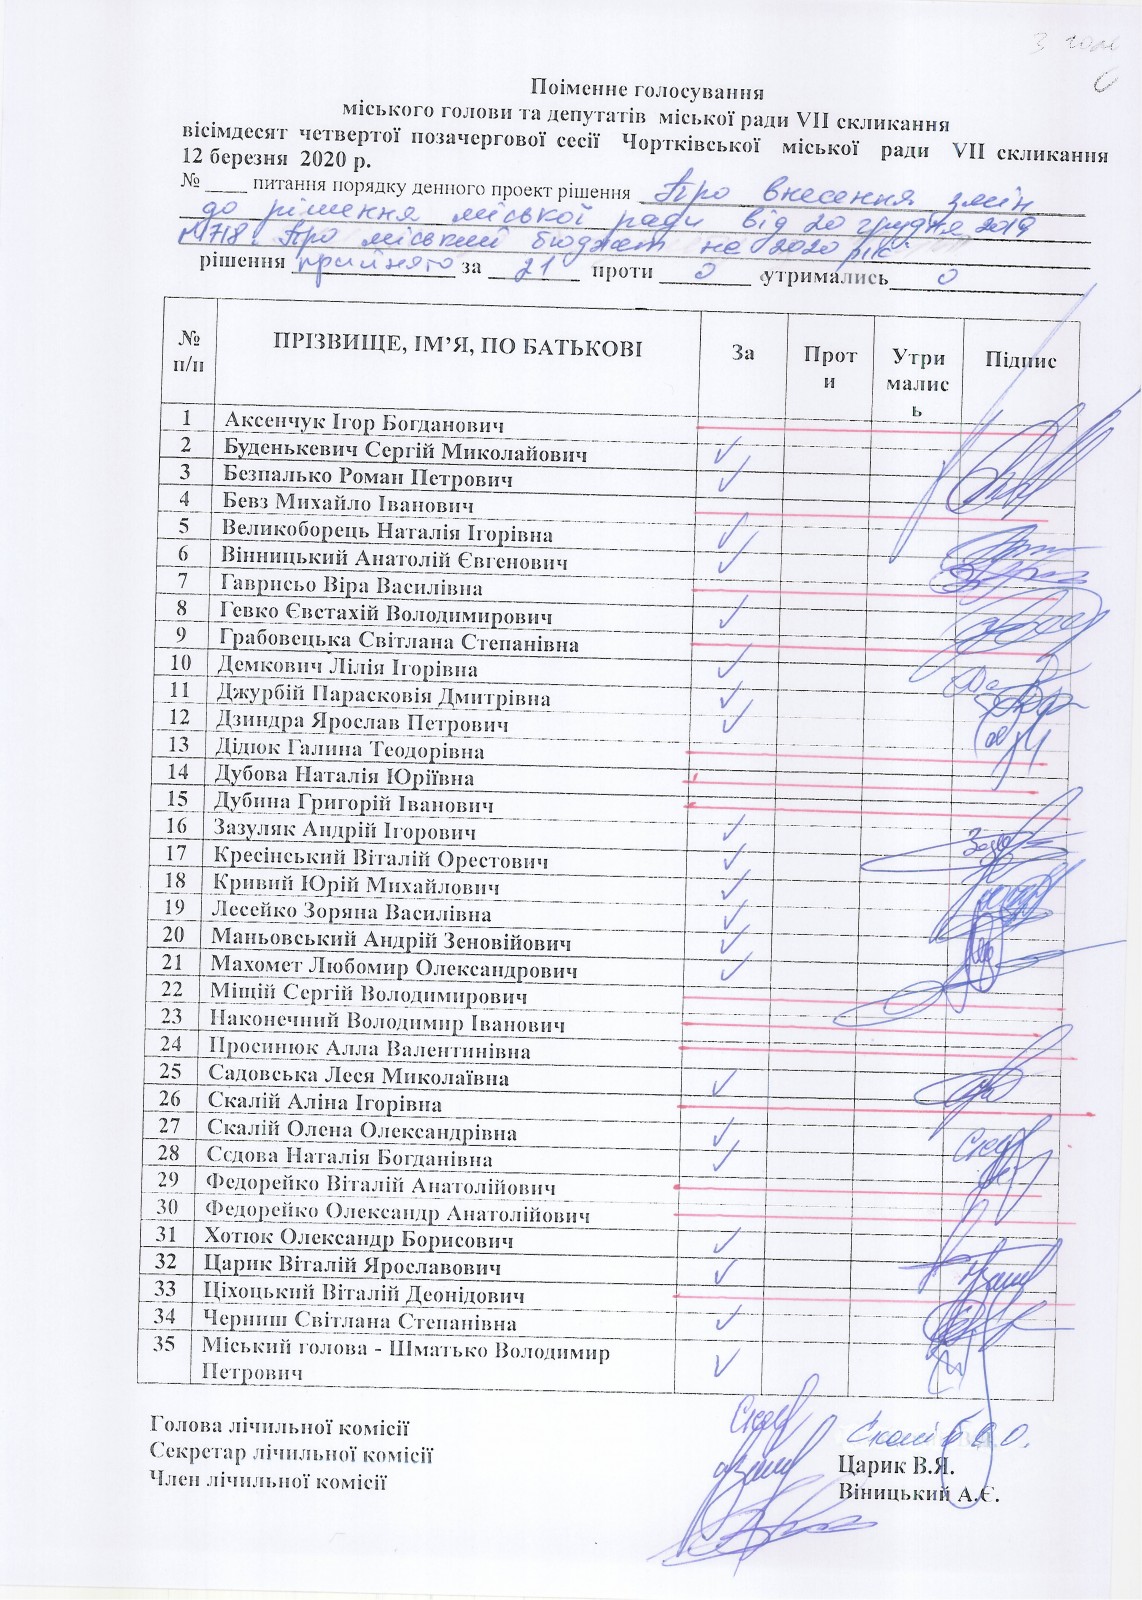 З голос
Поіменне голосування
міського голови та депутатів міської ради VII скликання
вісімдесят четвертої позачергової сесії Чортківської міської ради VII скликання
12 березня 2020 р.
№ ____ питання порядку денного проект рішення Про внесення змін
до рішення міської ради від 20 грудня 2019
№1718 "Про міський бюджет на 2020 рік"
рішення прийнято за 21 проти 0 утримались 0
№ п/п ПРІЗВИЩЕ, ІМ’Я, ПО БАТЬКОВІ За Проти Утримались Підпис
1 Аксенчук Ігор Богданович
2 Буденькевич Сергій Миколайович ✓
3 Безпалько Роман Петрович ✓
4 Бевз Михайло Іванович
5 Великоборець Наталія Ігорівна ✓
6 Вінницький Анатолій Євгенович ✓
7 Гаврисьо Віра Василівна
8 Гевко Євстахій Володимирович ✓
9 Грабовецька Світлана Степанівна
10 Демкович Лілія Ігорівна ✓
11 Джурбій Парасковія Дмитрівна ✓
12 Дзиндра Ярослав Петрович ✓
13 Дідюк Галина Теодорівна
14 Дубова Наталія Юріївна
15 Дубина Григорій Іванович
16 Зазуляк Андрій Ігорович ✓
17 Кресінський Віталій Орестович ✓
18 Кривий Юрій Михайлович ✓
19 Лесейко Зоряна Василівна ✓
20 Маньовський Андрій Зеновійович ✓
21 Махомет Любомир Олександрович ✓
22 Міщій Сергій Володимирович
23 Наконечний Володимир Іванович
24 Просинюк Алла Валентинівна
25 Садовська Леся Миколаївна ✓
26 Скалій Аліна Ігорівна
27 Скалій Олена Олександрівна ✓
28 Сєдова Наталія Богданівна ✓
29 Федорейко Віталій Анатолійович
30 Федорейко Олександр Анатолійович
31 Хотюк Олександр Борисович ✓
32 Царик Віталій Ярославович ✓
33 Ціхоцький Віталій Деонідович
34 Черниш Світлана Степанівна ✓
35 Міський голова - Шматько Володимир ✓
Петрович
Голова лічильної комісії
Секретар лічильної комісії Царик В.Я.
Член лічильної комісії Віницький А.Є.